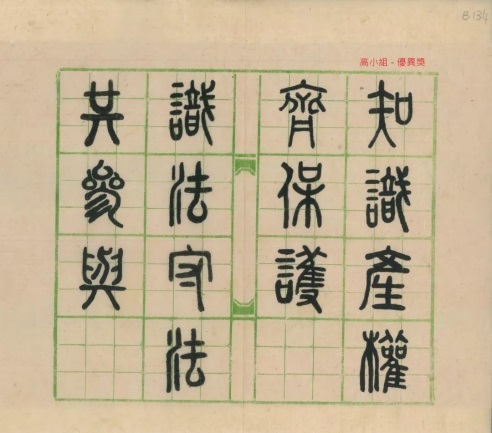 B134
高小組－優異獎
知識產權
齊保護
識法守法
共參與